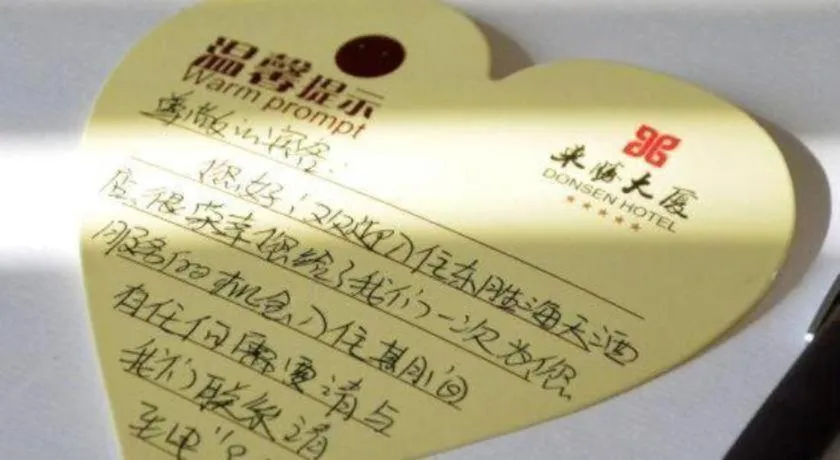 温馨提示
Warm prompt
东胜大厦
DONSEN HOTEL
尊敬的宾客:
您好!欢迎入住东胜海天酒
店,很荣幸您给了我们一次为您
服务的机会,入住其期间
有任何需要请与
我们联系请
致电"0